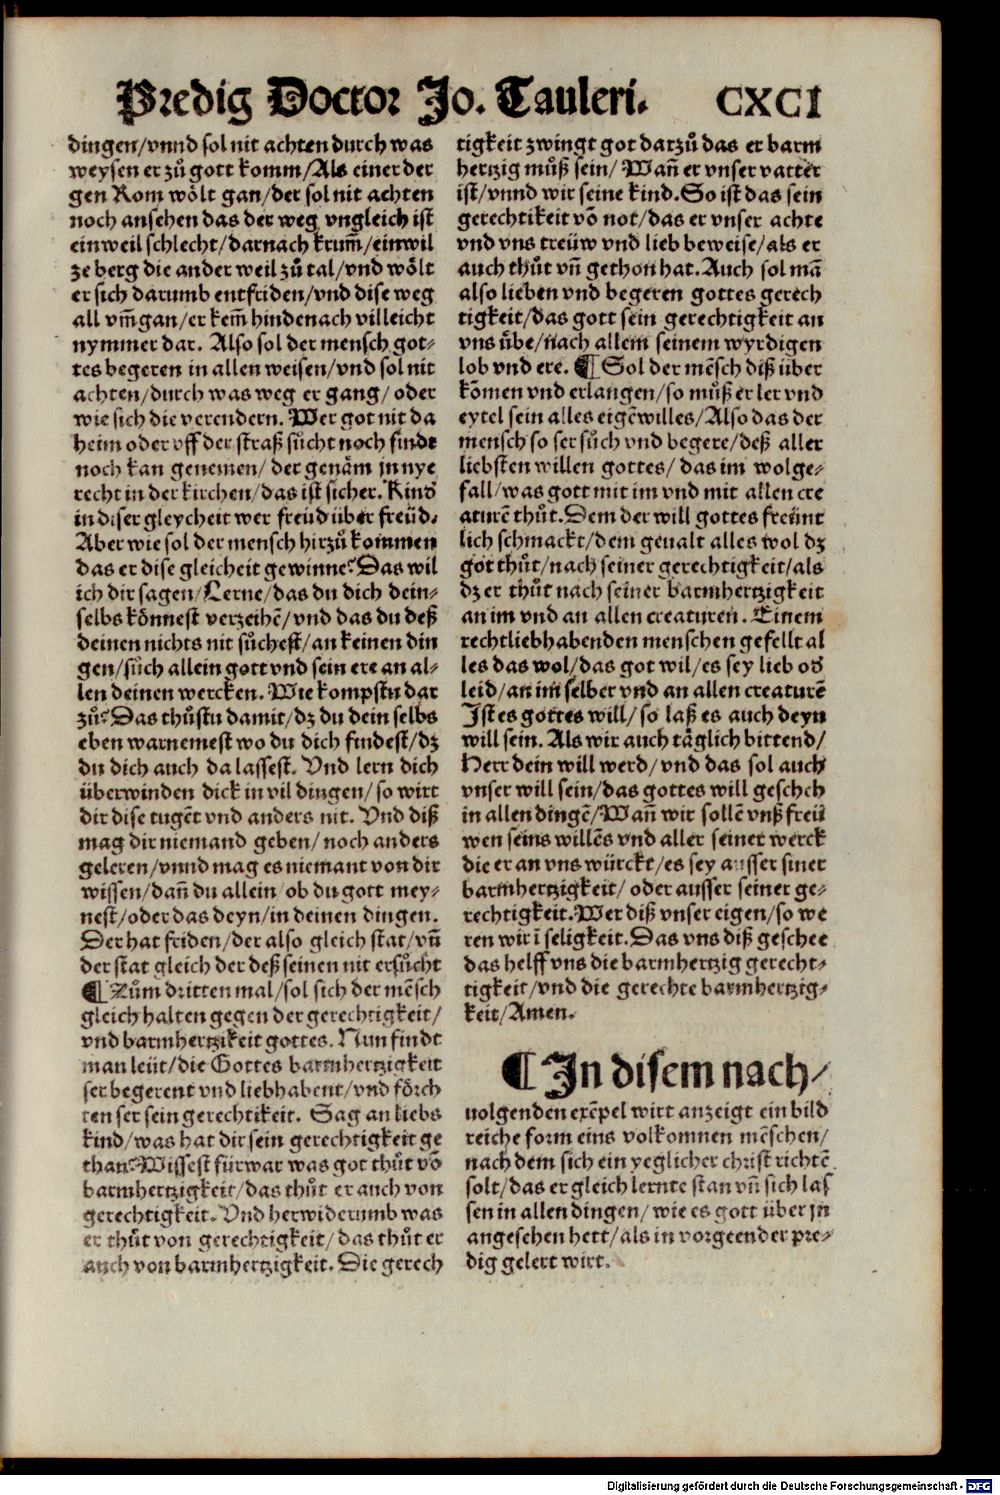 Predig Doctor Jo. Tauleri. CXCI
dingen/vnnd sol nit achten durch was
weysen er zů gott komm/Als einer der
gen Rom wölt gan/der sol nit achten
noch ansehen das der weg vngleich ist
ein weil schlecht/darnach krum̃/ein wil
ze berg die ander weil zů tal/vnd wölt
er sich darumb entfriden/vnd dise weg
all vm̃gan/er kem̃ hindenach villeicht
nymmer dar. Also sol der mensch got-
tes begeren in allen weisen/vnd sol nit
achten/durch was weg er gang/oder
wie sich die verendern. Wer got nit da
heim oder vff der straß sůcht noch findt
noch kan genemen/der genäm jn nye
recht in der kirchen/das ist sicher. Kind
in diser gleycheit wer freüd über freüd.
Aber wie sol der mensch hirzů kommen
das er dise gleicheit gewinne? Das wil
ich dir sagen/Lerne/das du dich dein-
selbs könnest verzeihẽ/vnd das du deß
deinen nichts nit sůchest/an keinen din
gen/sůch allein gott vnd sein ere an al-
len deinen wercken. Wie kompstu dar
zů? Das thůstu damit/dz du dein selbs
eben warnemest wo du dich findest/dz
du dich auch da lassest. Vnd lern dich
überwinden dick in vil dingen/so wirt
dir dise tugẽt vnd anders nit. Vnd diß
mag dir niemand geben/noch anders
geleren/vnnd mag es niemant von dir
wissen/dañ du allein/ob du gott mey-
nest/oder das deyn/in deinen dingen.
Der hat friden/der also gleich stat/vñ
der stat gleich der deß seinen nit ersůcht
¶ Zům dritten mal/sol sich der mẽsch
gleich halten gegen der gerechtigkeit/
vnd barmhertzikeit gottes. Nun findt
man leüt/die Gottes barmhertzigkeit
ser begerent vnd liebhabent/vnd förch
ten ser sein gerechtikeit. Sag an liebs
kind/was hat dir sein gerechtigkeit ge
than? Wissest fürwar was got thůt võ
barmhertzigkeit/das thůt er auch von
gerechtigkeit. Vnd herwiderumb was
er thůt von gerechtigkeit/das thůt er
auch von barmhertzigkeit. Die gerech
tigkeit zwingt got darzů das er barm
hertzig můß sein/Wañ er vnser vatter
ist/vnnd wir seine kind. So ist das sein
gerechtikeit võ not/das er vnser achte
vnd vns treüw vnd lieb beweise/als er
auch thůt vñ gethon hat. Auch sol mã
also lieben vnd begeren gottes gerech
tigkeit/das gott sein gerechtigkeit an
vns übe/nach allem seinem wyrdigen
lob vnd ere. ¶ Sol der mẽsch diß über
kõmen vnd erlangen/so můß er ler vnd
eytel sein alles eigẽ willes/Also das der
mensch so ser sůch vnd begere/deß aller
liebsten willen gottes/das im wolge-
fall/was gott mit im vnd mit allen cre
aturẽ thůt. Dem der will gottes freünt
lich schmackt/dem geualt alles wol dz
got thůt/nach seiner gerechtigkeit/als
dz er thůt nach seiner barmhertzigkeit
an im vnd an allen creaturen. Einem
recht liebhabenden menschen gefelt al
les das wol/das got wil/es sey lieb od
leid/an im selber vnd an allen creaturẽ
Ist es gottes will/so laß es auch deyn
will sein. Als wir auch täglich bittend/
Herr dein will werd/vnd das sol auch
vnser will sein/das gottes will gescheh
in allen dingẽ/Wañ wir sollẽ vnß freü
wen seins willẽs vnd aller seiner werck
die er an vns würckt/es sey ausser siner
barmhertzigkeit/oder ausser seiner ge-
rechtigkeit. Wer diß vnser eigen/so we
ren wir ĩ seligkeit. Das vns diß geschee
das helff vns die barmhertzig gerecht-
tigkeit/vnd die gerechte barmhertzig-
keit/Amen.
¶ In disem nach-
uolgenden exẽpel wirt anzeigt ein bild
reiche form eins volkomnen mẽschen/
nach dem sich ein yeglicher christ richtẽ
solt/das er gleich lernte stan vñ sich las
sen in allen dingen/wie es gott über jn
angesehen hett/als in vorgeender pre-
dig gelert wirt.
Digitalisierung gefördert durch die Deutsche Forschungsgemeinschaft - DFG